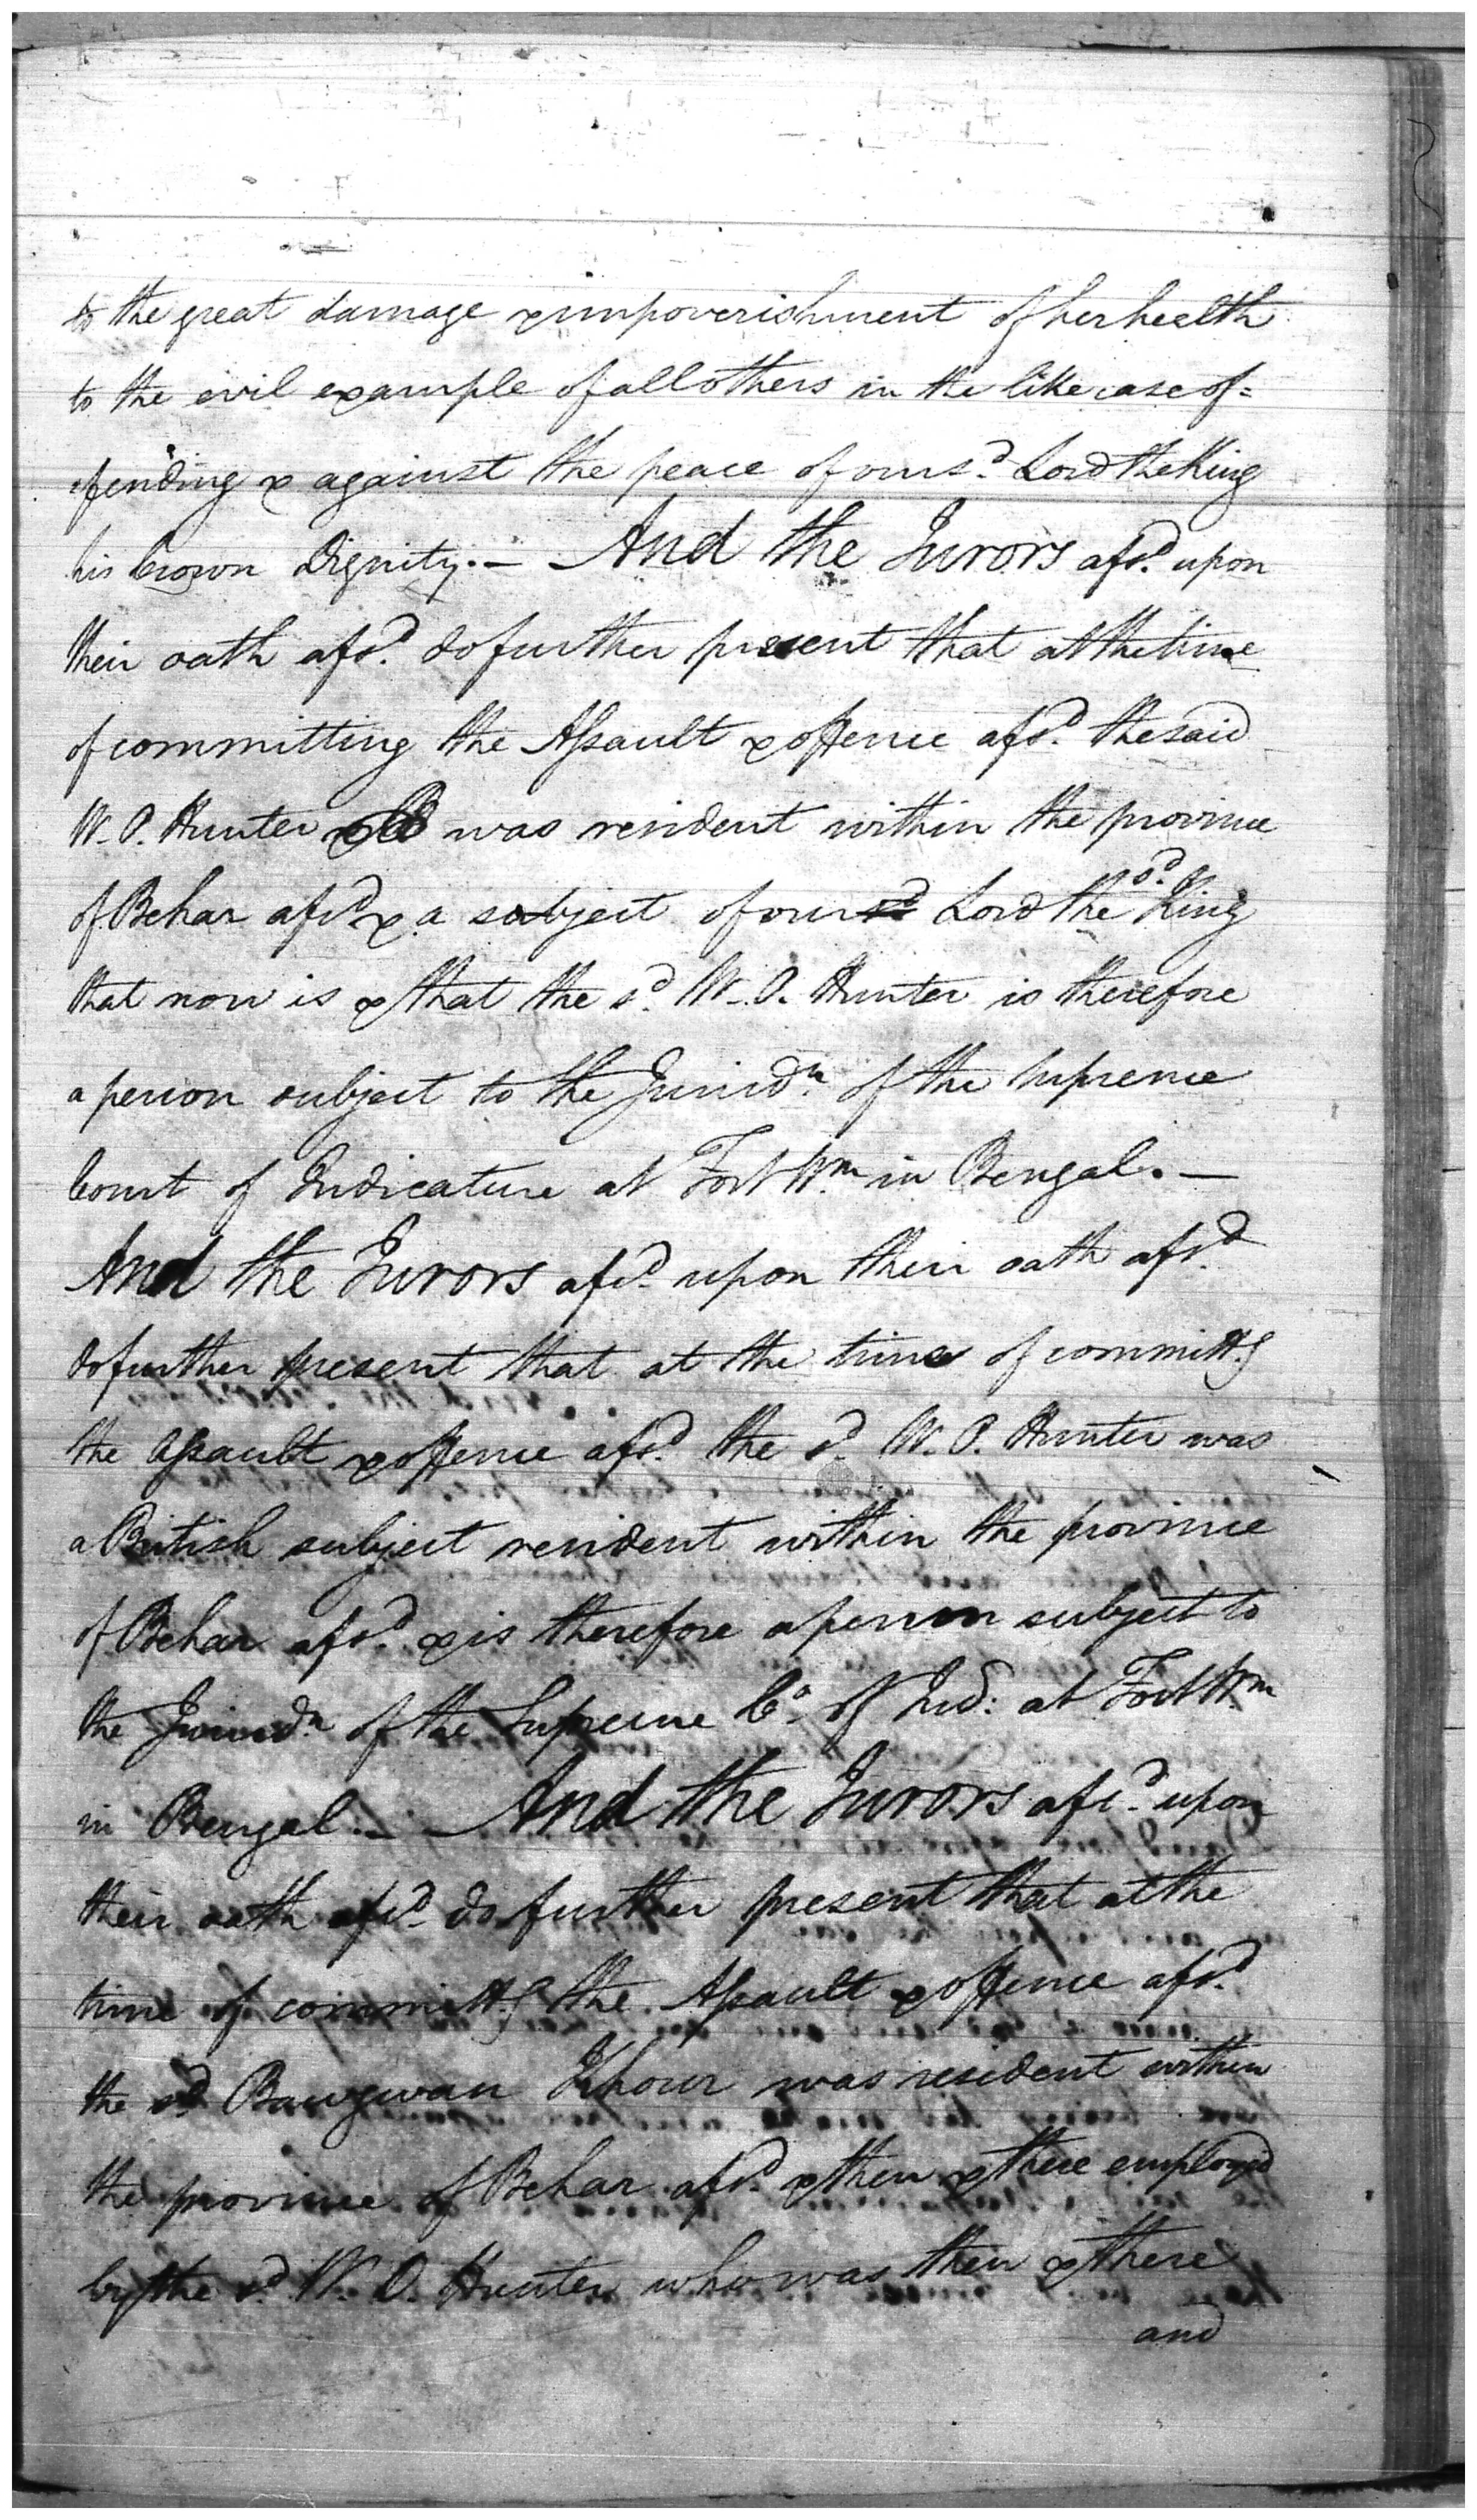 to the great damage & impoverishment of her health
to the evil example of all others in the like case of=
fending & against the peace of our sd. Lord the King
his Crown Dignity. — And the Jurors afsd. upon
their oath afsd. do further present that at the time
of committing the Assault & offence afsd. the said
W. O. Hunter was resident within the province
of Behar afsd. & a subject of our sd Lord the sd. King
that now is & that the sd. W. O. Hunter is therefore
a person subject to the Jurisdn. of the Supreme
Court of Judicature at Fort Wm. in Bengal. —
And the Jurors afsd. upon their oath afsd.
do further present that at the time of committg
the Assault & offence afsd. the sd. W. O. Hunter was
a British subject resident within the province
of Behar afsd. & is therefore a person subject to
the Jurisdn. of the Supreme Co. of Jud: at Fort Wm.
in Bengal. — And the Jurors afsd. upon
their oath afsd. do further present that at the
time of committg the Assault & offence afsd.
the sd. Baugwan Khour was resident within
the province of Behar afsd. & then & there employed
by the sd. W. O. Hunter who was then & there
and